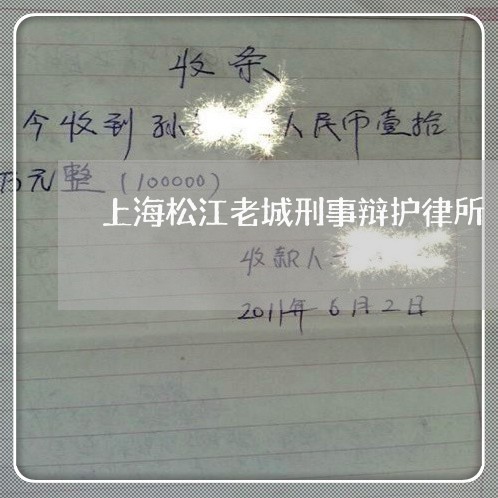 收条
今收到孙 人民币壹拾
万元整（100000）
上海松江老城刑事辩护律所
收款人
2011年6月2日